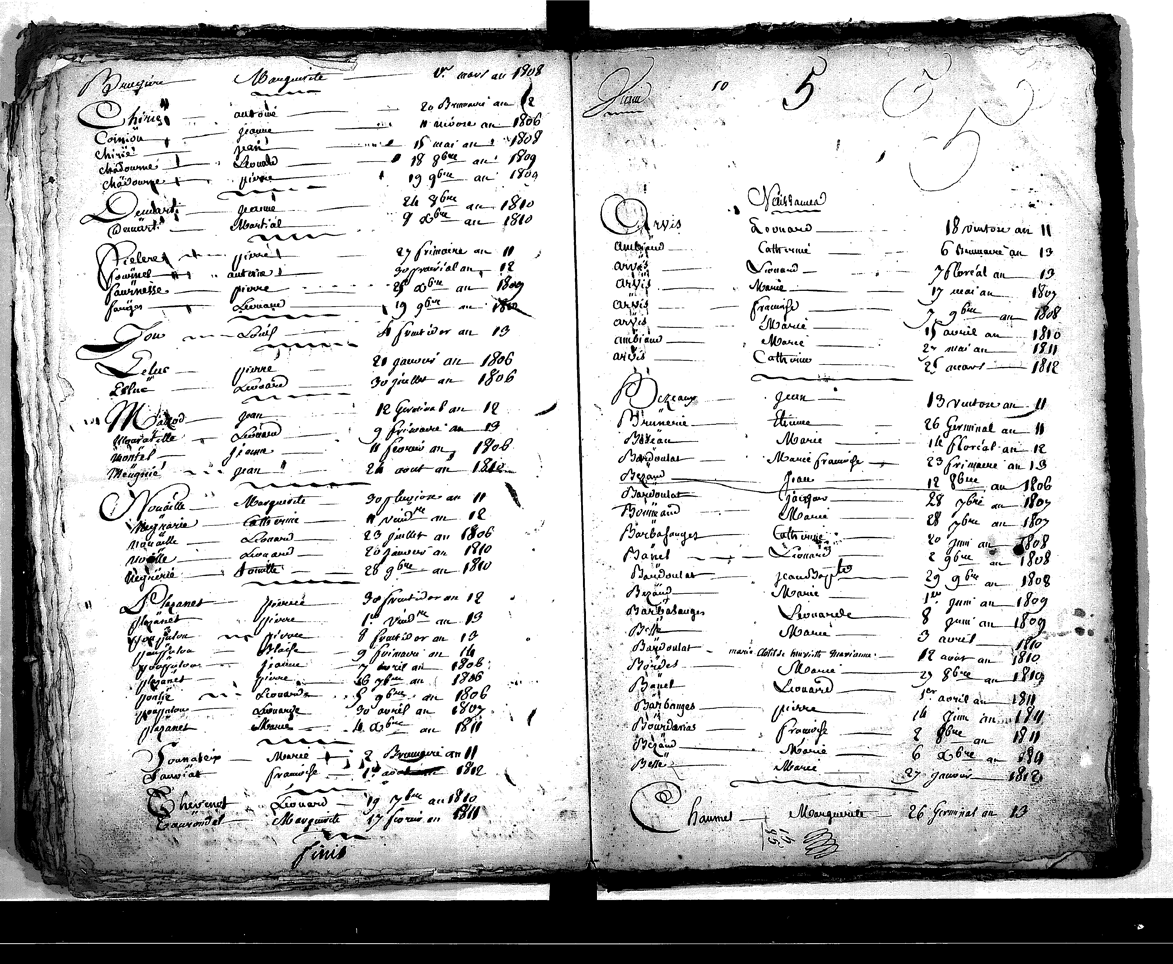 Bruyière Marguerite 1er mars an 1808
Chiris antoine 20 Brumaire an 12
Coiniou jeanne 11 nivose an 1806
Chiris jean 15 mai an 1808
chadourne Léonard 18 8bre an 1809
chadourne pierre 19 9bre an 1809
Demarti jeanne 24 8bre an 1810
Demarti Martial 9 xbre an 1810
pierre 27 frimaire an 11
fournel antoine 30 prairial an 12
fournesse pierre an 1809
Léonard 19 9bre an
Gou Louis fructidor an 13
Leluc pierre 21 janvier an 1806
Leluc Léonard 30 juillet an 1806
jean 12 Germinal an 12
Léonard 9 frimaire an 13
montel jeanne 11 fevrier an 1806
Meugnié jean 24 aout an 1812
Nouaille Marguerite 30 pluviose an 11
Negnerie Catherine 11 vendre an 12
nouaille Léonard 23 juillet an 1806
nouaille Léonard 20 janvier an 1810
Negnerie 28 9bre an 1810
Plazanet pierre 30 fructidor an 12
plazanet pierre 1er vendre an 13
pierre 8 fructidor an 13
Blaise 9 frimaire an 14
jeanne 7 avril an 1806
plazanet pierre 7bre an 1806
Léonarde 5 9bre an 1806
Léonarde 30 avril an 1807
plazanet Marie 4 xbre an 1811
Marie 2 Brumaire an 11
françoise 1er 1812
Thevenot Léonard 19 7bre an 1810
Taurondel Marguerite 17 fevrier an 1811
finis
10 5
Naissances
Arvis Léonard 18 ventose an 11
ambiaud Catherine 6 Brumaire an 13
arvis Léonard 7 floréal an 13
arvis Marie 17 mai an 1807
arvis françoise 7 9bre an 1808
arvis Marie 15 avril an 1810
ambiaud Marie 27 mai an 1811
arvis Catherine 25 mars 1812
Bezeaux jean 13 ventose an 11
Brunerie Etienne 26 Germinal an 11
Marie 14 floréal an 12
Bardoulat Marie françoise 23 frimaire an 13
Bezaud jean 12 8bre an 1806
Bardoulat jacques 28 7bre an 1807
Bonnaud Marie 28 7bre an 1807
Barbafanges Catherine 20 juin an 1808
Banel Léonard 2 9bre an 1808
Bardoulat jean Bapte 29 9bre an 1808
Bezaud Marie 1er juin an 1809
Barbafanges Léonarde 8 juin an 1809
Besse Marie 3 avril 1810
Bardoulat marie Clotilde henriette 12 août an 1810
Bordes Marie 29 8bre an 1810
Banel Léonard 1er avril an 1811
Barbanges pierre 14 juin an 1811
Bourdarias françoise 2 8bre an 1811
Bezaud Marie 6 xbre an 1811
Besse Marie 27 janvier 1812
Chaumet Marguerite 26 Germinal an 13